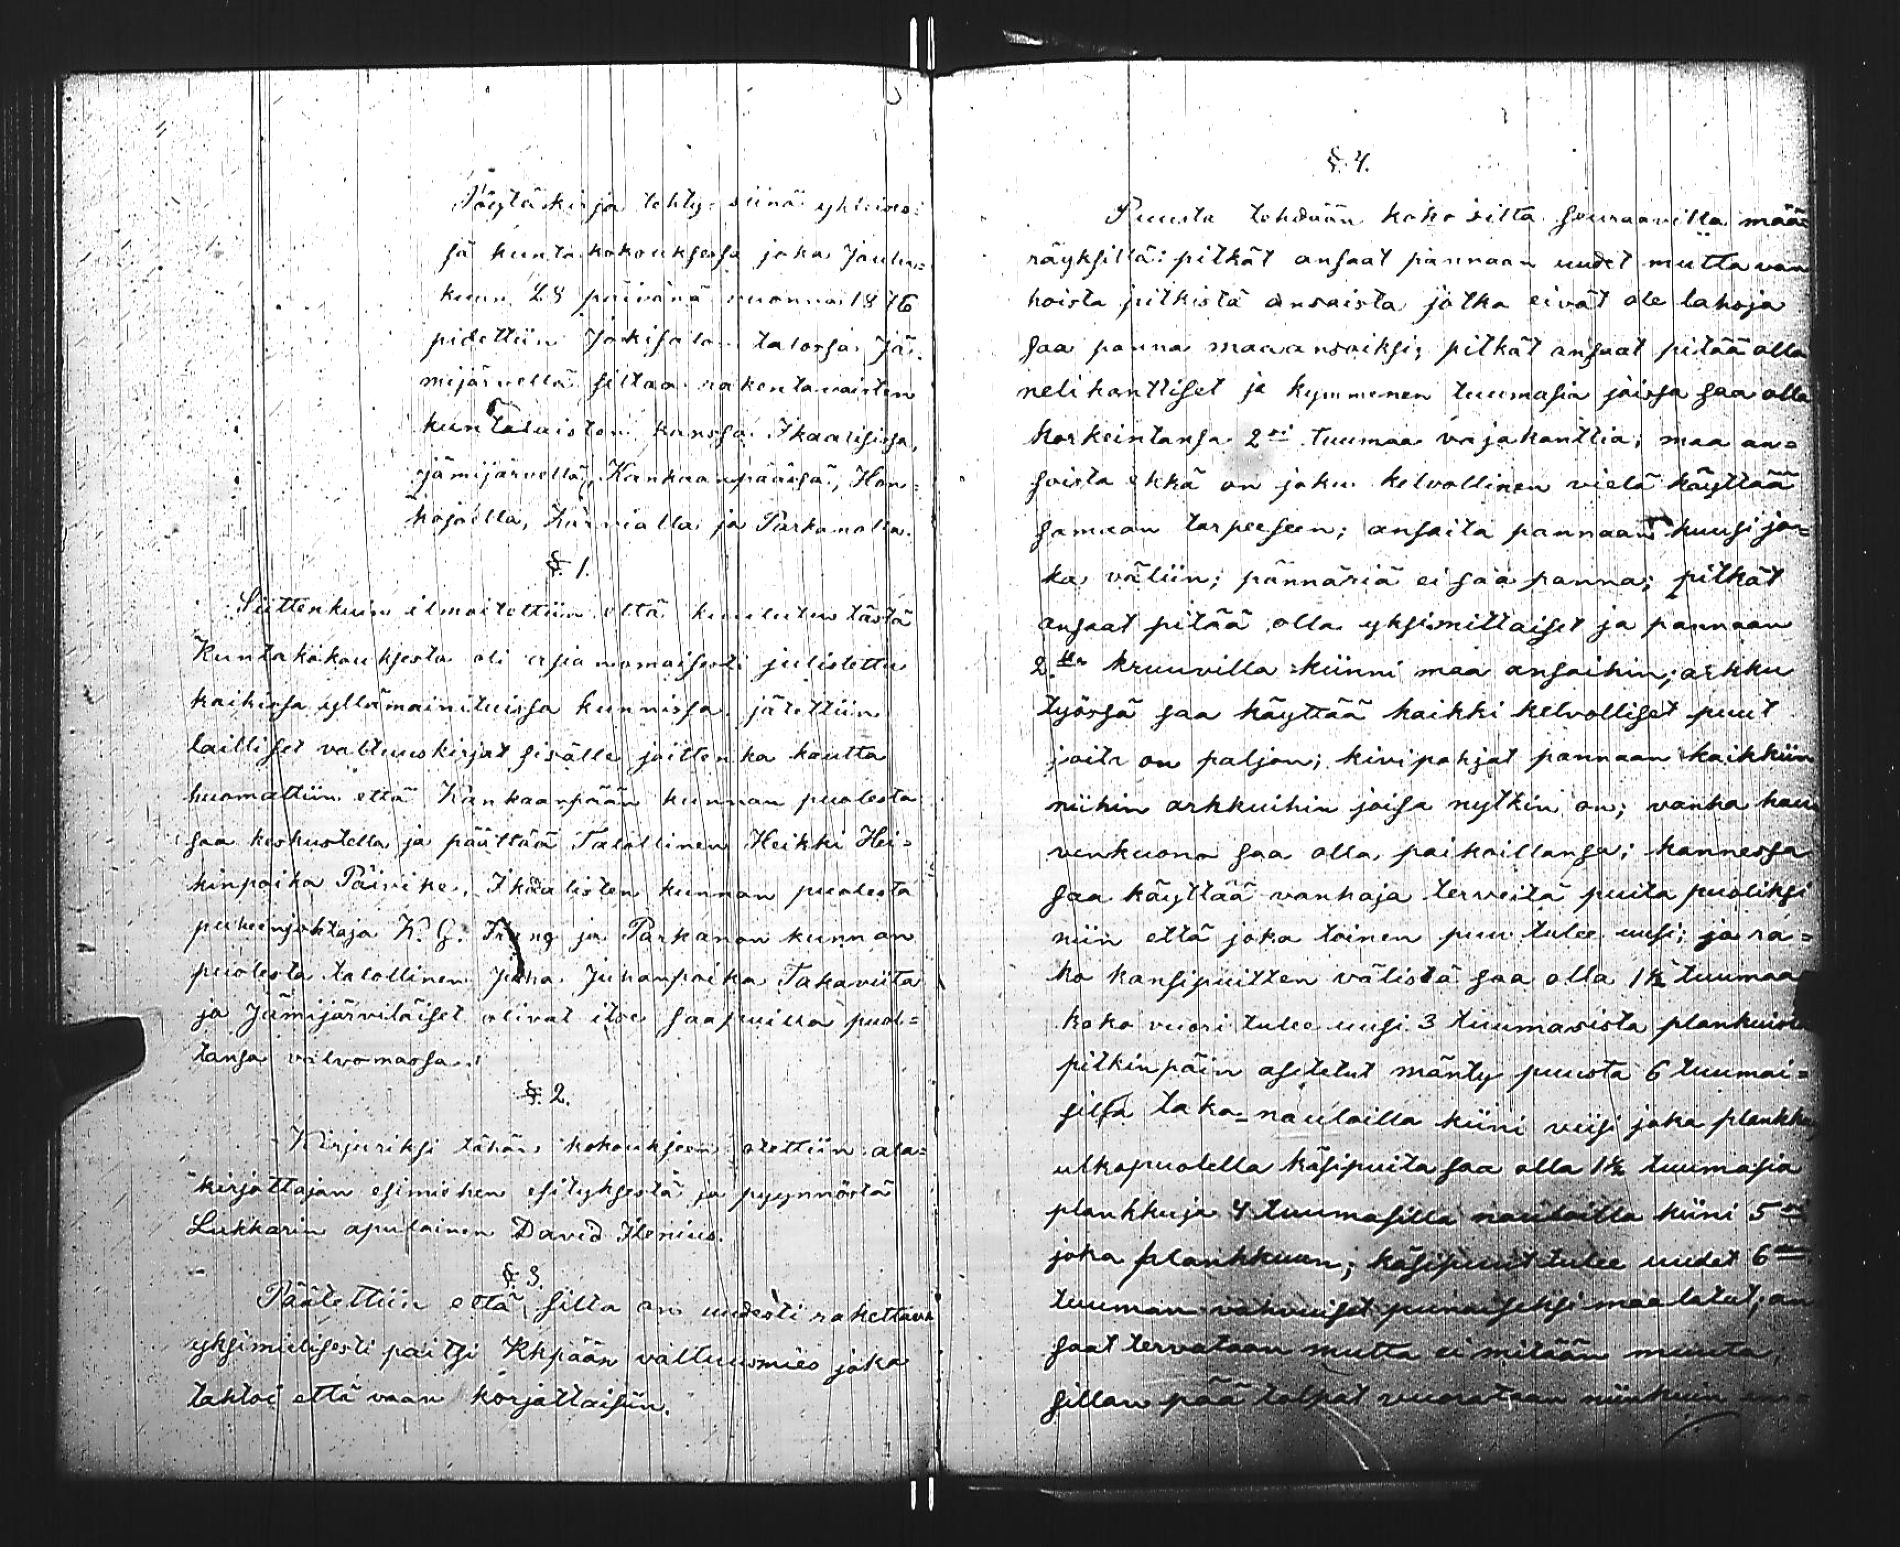 Pöytäkirja tehty siinä yhteises-
sä kuntakokouksessa joka Joulu=
kuun 28 päivänä vuonna 1876
pidettiin talossa Jä-
mijärvellä siltaa rakentavaisten
kuntalaisten kanssa Ikaalisissa,
Jämijärvellä, Kankaanpäässä, Hon-
kajoella, Karvialla ja Parkanolla.
§. 1.
Siittenkuin ilmoitettiin että kuulutus tästä
Kuntakokouksesta oli asianomaisesti julistettu
kaikissa yllämainituissa kunnissa jätettiin
lailliset valtuuskirjat sisälle joittenka kautta
huomattiin että Kankaanpään kunnan puolesta
saa keskustella ja päättää Talollinen Heikki Hei=
kinpoika Päivike, Ikaalisten kunnan puolesta
puheenjohtaja K. G. Trang ja Parkanon kunnan
puolesta talollinen Juha Juhanpoika Takaviita
ja Jämijärviläiset olivat itse saapuilla puol=
tansa valvomassa.
§. 2.
Kirjuriksi tähän kokoukseen otettiin ala=
kirjottajan esimiehen esityksestä ja pyynnöstä
Lukkarin apulainen David Ilenius.
§. 3.
Päätettiin että silta on uudesti rakettava
yksimielisesti paitsi Kkpään valtuusmies joka
tahtoi että vaan korjattaisiin.
§. 4.
Puusta tehdään koko silta seuraavilla mää=
räyksillä: pitkät ansaat pannaan uudet mutta van
hoista pitkistä ansaista jotka eivät ole lahoja
saa panna maaansaiksi; pitkät ansaat pitää olla
nelikanttiset ja kymmenen tuumasia joissa saa olla
korkeintansa 2si tuumaa vajakanttia; maa an=
saista ehkä on joku kelvollinen vielä käyttää
samaan tarpeeseen; ansaita pannaan kuusi jo=
ka väliin; pännäriä ei saa panna; pitkät
ansaat pitää olla yksimittaiset ja pannaan
2lla kruuvilla kiinni maa ansaihin; arkku
työssä saa käyttää kaikki kelvolliset puut
joita on paljon; kivipohjat pannaan kaikkiin
niihin arkkuihin joisa nytkin on; vanha hau
venkuono saa olla paikoillansa; kannessa
saa käyttää vanhoja terveitä puita puoliksi
niin että joka toinen puu tulee uusi; ja ra=
ko kansipuitten välistä saa olla 1½ tuumaa
koko vuori tulee uusi 3 tuumasista plankuista
pitkinpäin asetetut mänty puusta 6 tuumai=
silla taka-nauloilla kiini viisi joka plankku
ulkopuolella käsipuita saa olla 1½ tuumasia
plankkuja 4 tuumasilla nauloilla kiini 5si
joka plankkuun; käsipuut tulee uudet 6en
tuuman vahvuiset punaiseksi maalatut; an
saat tervataan mutta ei mitään muuta,
sillan pää tolpat vuorataan niinkuin